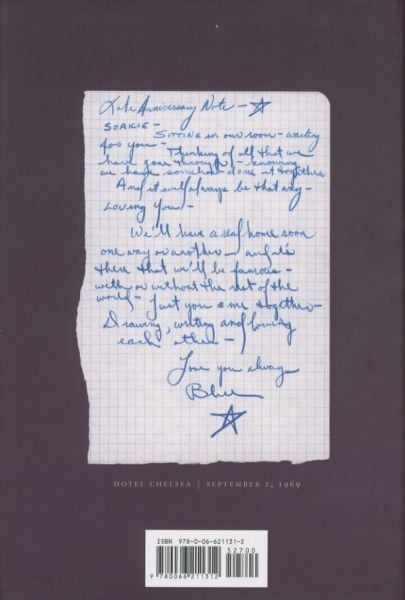 Late Anniversary Note - ☆
SOAKIE -
Sitting in our room - waiting
for you - Thinking of all that we
have gone through - knowing
we have somehow done it together
And it will always be that way -
Loving You -
We'll have a real home soon
one way or another - and it's
there that we'll be famous -
with or without the rest of the
world - Just you & me together -
Drawing, writing and loving
each other -
Love you always
Blue
☆
HOTEL CHELSEA | SEPTEMBER 1, 1969
ISBN 978-0-06-621131-2
52700
9 780066 211312